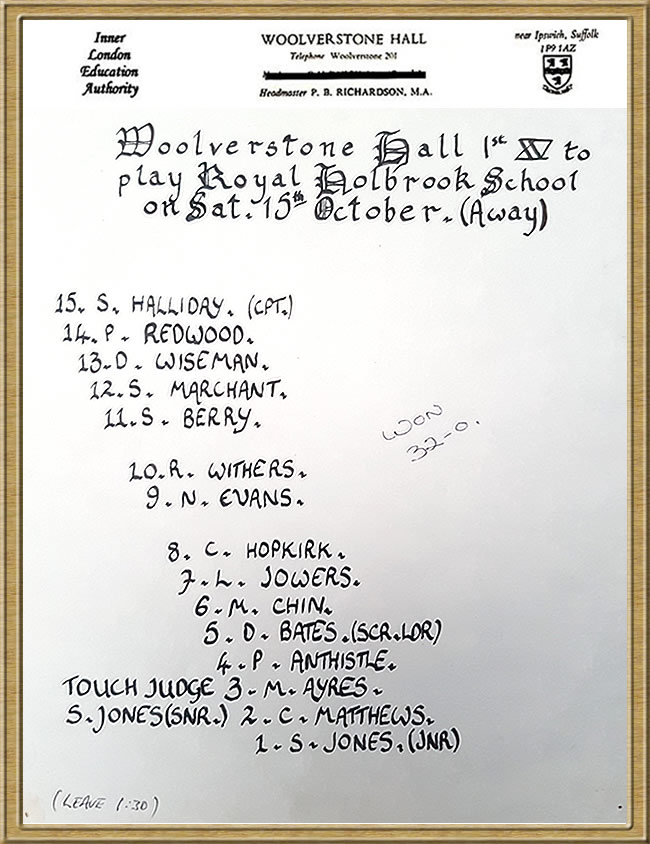 Inner
London
Education
Authority
WOOLVERSTONE HALL
Telephone Woolverstone 201
Headmaster P. B. RICHARDSON, M.A.
near Ipswich, Suffolk
IP9 1AZ
Woolverstone Hall 1st XV to
play Royal Holbrook School
on Sat. 15th October. (Away)
15. S. HALLIDAY. (CPT.)
14. P. REDWOOD.
13. D. WISEMAN.
12. S. MARCHANT.
11. S. BERRY.
WON
32-0.
10. R. WITHERS.
9. N. EVANS.
8. C. HOPKIRK.
7. L. JOWERS.
6. M. CHIN.
5. D. BATES. (SCR. LDR)
4. P. ANTHISTLE.
TOUCH JUDGE 3. M. AYRES.
S. JONES (SNR.) 2. C. MATTHEWS.
1. S. JONES. (JNR)
(LEAVE 1:30)